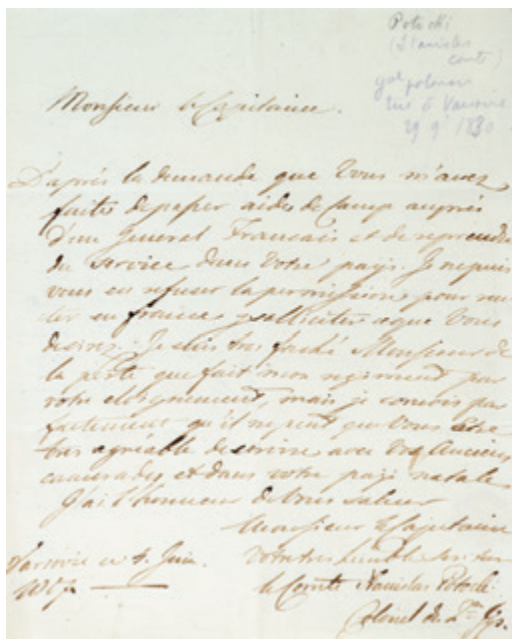 Potocki
(Stanislas
comte)
gal polonais
tué à Varsovie
29 9bre 1830
Monsieur le Capitaine.
D'après la demande que Vous m'avez
faite de passer aide de Camp auprès
d'un General Francais et de reprendre
du service dans Votre pays. Je ne puis
vous en refuser la permission pour
en france solliciter ce que Vous
desirez. Je suis tres faché Monsieur de
la perte que fait mon regiment par
votre eloignement, mais je conçois par
faitement qu'il ne peut que Vous être
tres agréable de servire avec Vos Anciens
camarades et dans votre pays natale
J'ai l'honneur de Vous saluer
Monsieur le Capitaine
Varsovie ce 4. Juin
Votre tres humble
le Comte Stanislas Potocki
Colonel du 2me